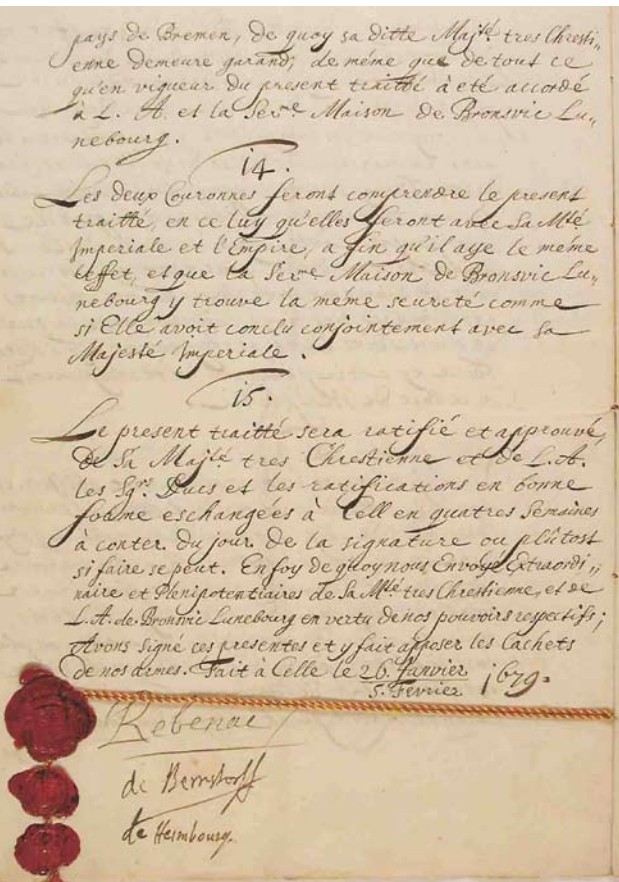 pays de Bremen, de quoy sa ditte Maj.té tres Chresti„
enne demeure garand; de méme que de tout ce
qu'en vigueur du present traitté à eté accordé
à L. A. et la Ser.me Maison de Bronsvic Lu„
nebourg.
14.
Les deux Couronnes feront comprendre le present
traitté, en ce luy qu'elles feront avec Sa M.té
Imperiale et l'Empire, a fin qu'il aye le méme
effet, et que la Ser.me Maison de Bronsvic Lu„
nebourg y trouve la méme seureté comme
si Elle avoit conclu conjointement avec Sa
Majesté Imperiale.
15.
Le present traitté sera ratifié et approuvé,
de Sa Maj.té tres Chrestienne et de L. A.
les Sg.rs Ducs et les ratifications en bonne
fourme eschangées à Cell en quatres Semaines
à conter du jour de la signature ou plûtost
si faire se peut. En foy de quoy nous Envoyé Extraordi„
naire et Plenipotentiaires de Sa M.té tres Chrestienne, et de
L. A. de Bronsvic Lunebourg en vertu de nos pouvoirs respectifs;
Avons signé ces presentes et y fait apposer les Cachets
de nos armes. Fait à Celle le 26. Janvier
5. Fevrier 1679.
Rebenac
de Bernstorff
de Heimbourg.